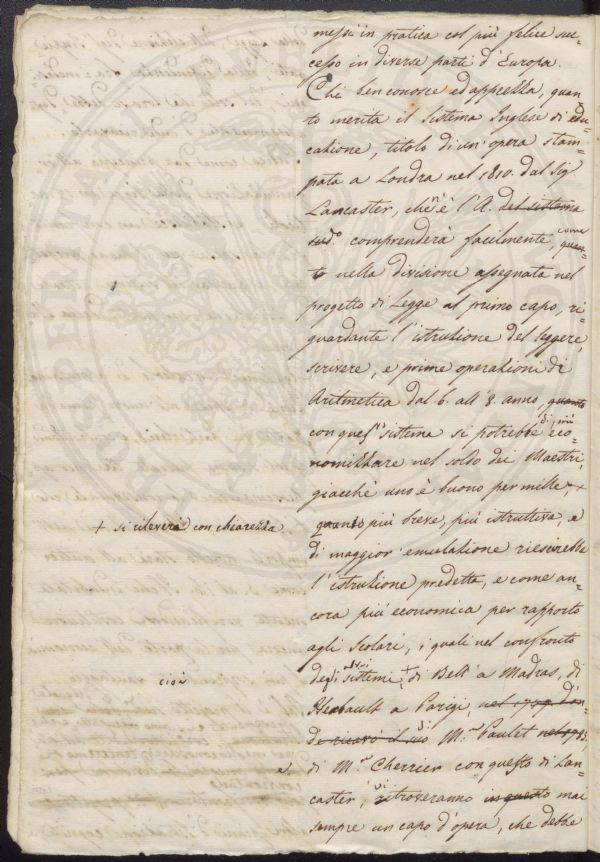 messi in pratica col più felice suc=
cesso in diverse parti d'Europa.
Chi ben conosce ed apprezza, quan
to merita il sistema Inglese di edu=
cazione, titolo di un'opera stam=
pata a Londra nel 1810. dal Sig.
Lancaster, che n'è l'A. del sistema
sud.º comprenderà facilmente, come quan
to nella divisione assegnata nel
progetto di Legge al primo capo, ri=
guardante l'istruzione del leggere,
scrivere, e prime operazioni di
Aritmetica dal 6. all' 8. anno, quanto
con questo sistema si potrebbe di più eco=
nomizzare nel soldo dei Maestri,
giacchè uno è buono per mille, +
+ si rileverà con chiarezza
quanto più breve, più istruttiva, e
di maggior emulazione riescirebbe
l'istruzione predetta, e come an=
cora più economica per rapporto
agli Scolari, i quali nel confronto
degli altri sistemi, + di Bell a Madras, di
cioè
Herbault a Parigi, nel 1779 d'on=
de ricavò il suo di M.r Paulet nel
e
di M.r Cherrier con questo di Lan=
caster, si ritroveranno in questo mai
sempre un capo d'opera, che debbe